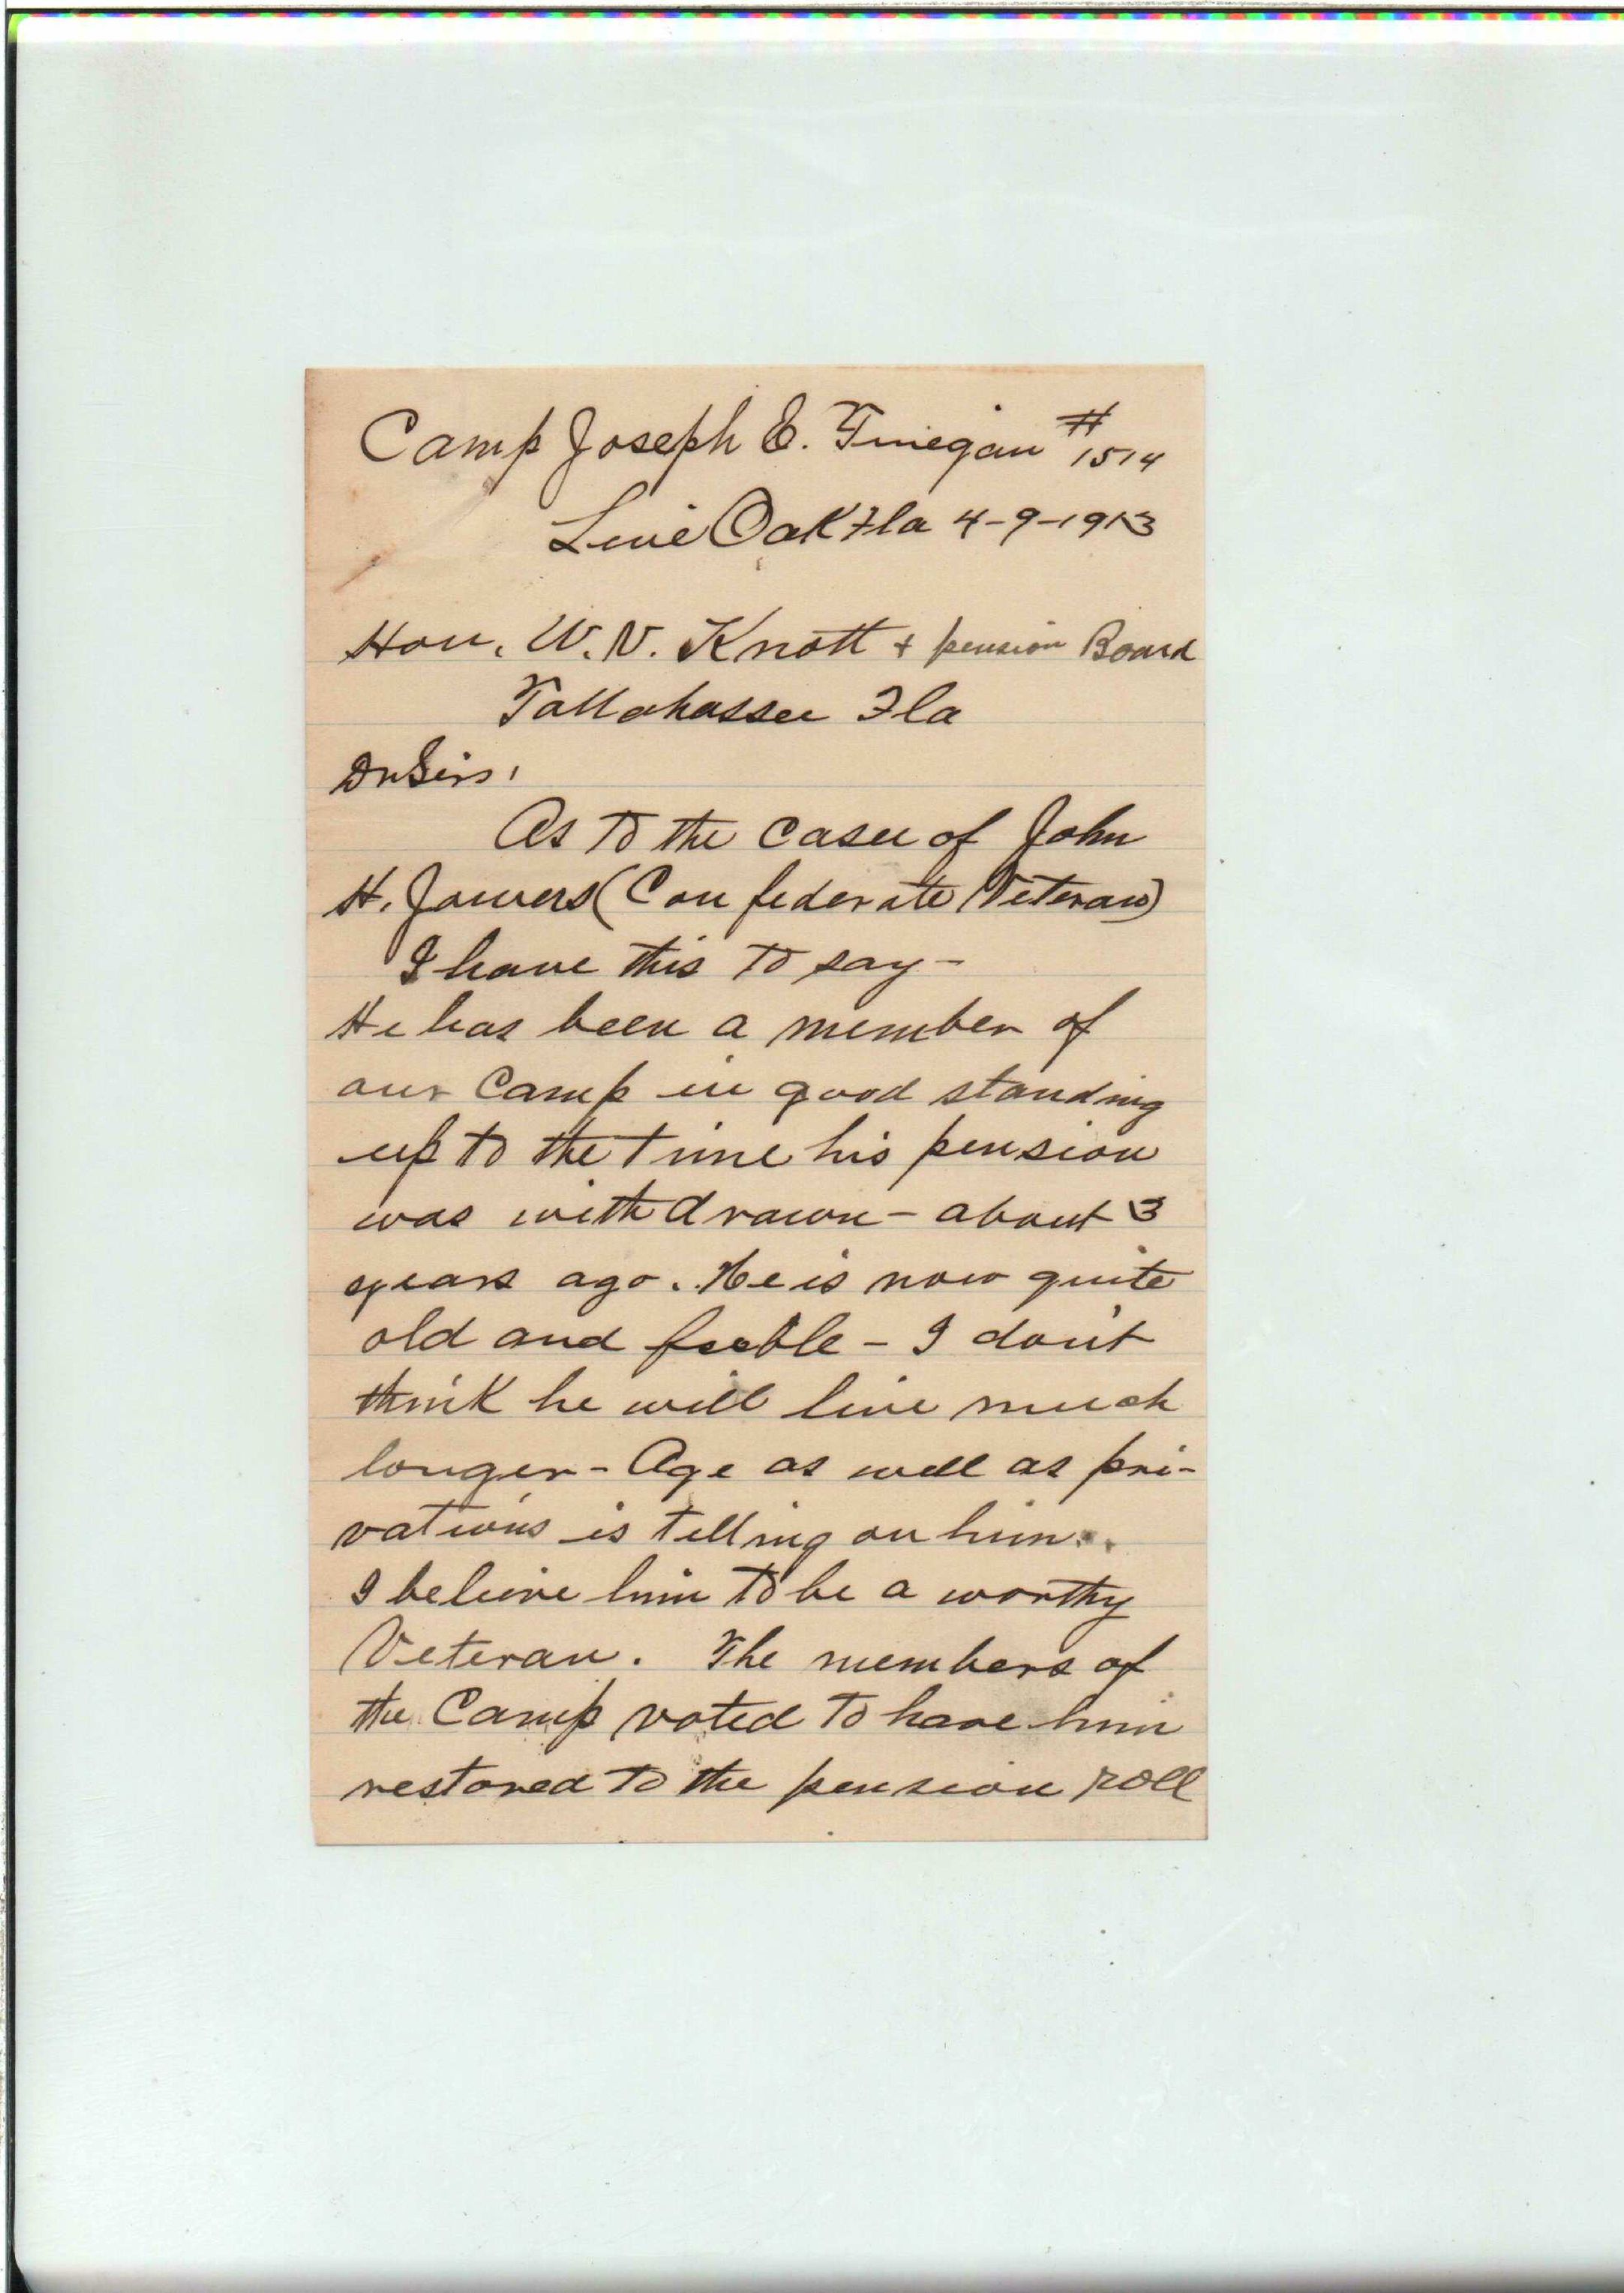 Camp Joseph E. Finegan #1514
Live Oak Fla 4-9-1913
Hon. W. V. Knott + pension Board
Tallahassee Fla
Dr Sirs,
As to the case of John
H. Jowers (Confederate Veteran)
I have this to say-
He has been a member of
our Camp in good standing
up to the time his pension
was withdrawn - about 3
years ago. He is now quite
old and feeble - I don't
think he will live much
longer - Age as well as pri-
vations is telling on him.
I believe him to be a worthy
Veteran. The members of
the Camp voted to have him
restored to the pension roll